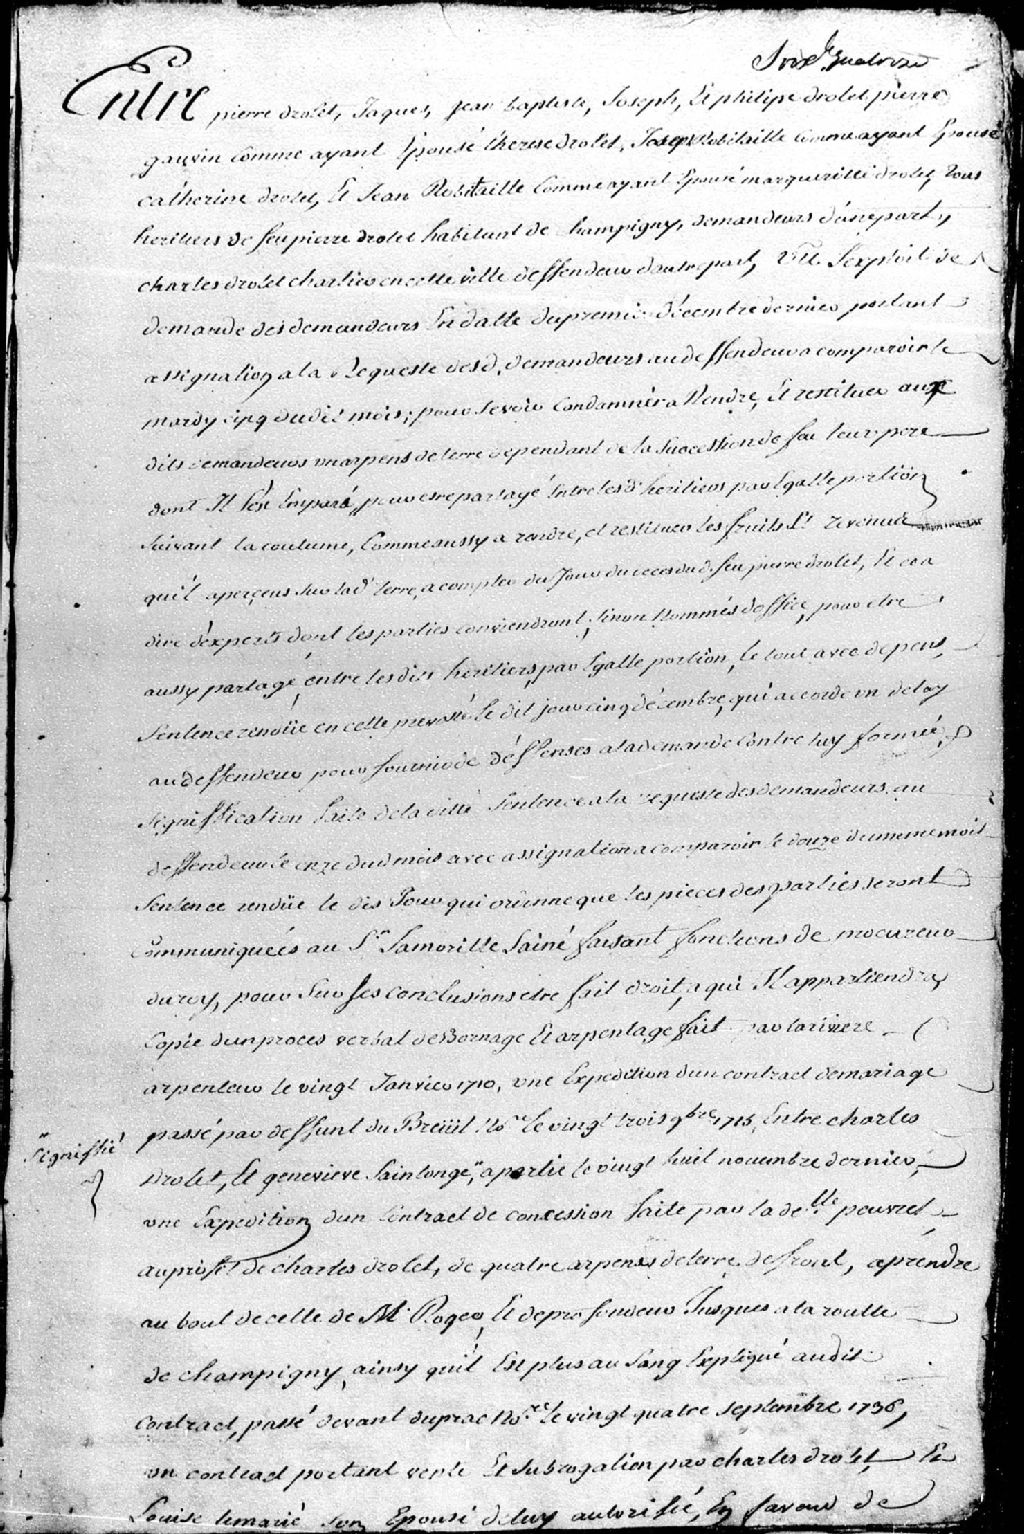 Entre pierre drolet, Jaques, jean baptiste, Joseph, Et philipe drolet pierre
gauvin comme ayant Epousé therese drolet, Joseph Robitaille comme ayant Epousé
catherine drolet, Et Jean Robitaille Comme ayant Epousé margueritte drolet, tous
heritiers de feu pierre drolet habitant de champigny, demandeurs d'une part,
charles drolet chartier en cette ville deffendeur dautre part, Vû L'exploit de
demande des demandeurs En datte du premier décembre dernier portant
assignation a la Requeste desd. demandeurs au deffendeur a comparoir le
mardy cinq dudit mois; pour se voir Condamner a Rendre, Et restituer aux
dits demandeurs un arpens de terre dependant de la Succession de feu leur pere
dont Il s'est Emparé, pour estre partagé Entre lesd. heritiers par Egalle portion
suivant la coutume, Comme aussy a rendre, et restituer les fruits Et revenus
quil a perçeus sur lad. terre, a compter du Jour du deces dud. feu pierre drolet, Et ce a
dire d'experts dont les parties conviendront, sinon Nommés d'office, pour etre
aussy partagé, entre lesdits heritiers, par Egalle portion, Le tout avec depens,
Sentence renduë en cette prevosté le dit jour cinq décembre, qui accorde un delay
au deffendeur pour fournir de déffenses a la demande Contre luy formée,
signiffication faite de la ditte Sentence a la requeste des demandeurs au
deffendeur le onze dud. mois avec assignation a comparoir le douze du meme mois
Sentence renduë le dit Jour qui ordonne que les pieces des parties seront
Communiquées au Sr. Lamorille L'ainé faisant fonctions de procureur
du roy, pour Sur ses conclusions etre fait droit, a qui Il appartiendra
Copie d'un procès verbal de Bornage Et arpentage fait par lariviere
arpenteur le vingt Janvier 1710, une Expedition d'un contract de mariage
passé par deffunt du Breüil Nore. le vingt trois 9bre 1715, Entre charles
signiffié
Drolet, Et genevieve Saintonge, a partie le vingt huit novembre dernier,
une Expedition d'un Contract de concession faite par la delle. peuvret
au profit de charles drolet, de quatre arpens de terre de front, a prendre
au bout de celle de Mr Roger, Et de profondeur Jusques a la routte
de champigny, ainsy quil Est plus au Long Expliqué audit
Contract, passé devant duprac Nore. le vingt quatre septembre 1736,
un contract portant vente Et Subrogation par charles drolet, Et
Louise lemarié son Epouse de luy autorisée, En faveur de